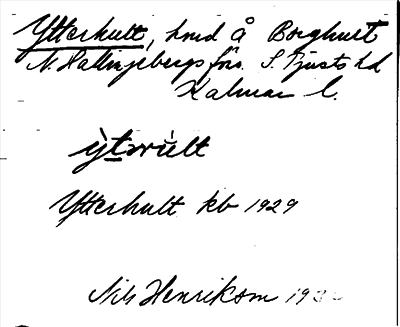 Ytterhult, hmd å Borghult
N. Hallingebergs förs. S. Tjusts hd
Kalmar l.
Ytterhult kb 1929
Nils Henrikson 193